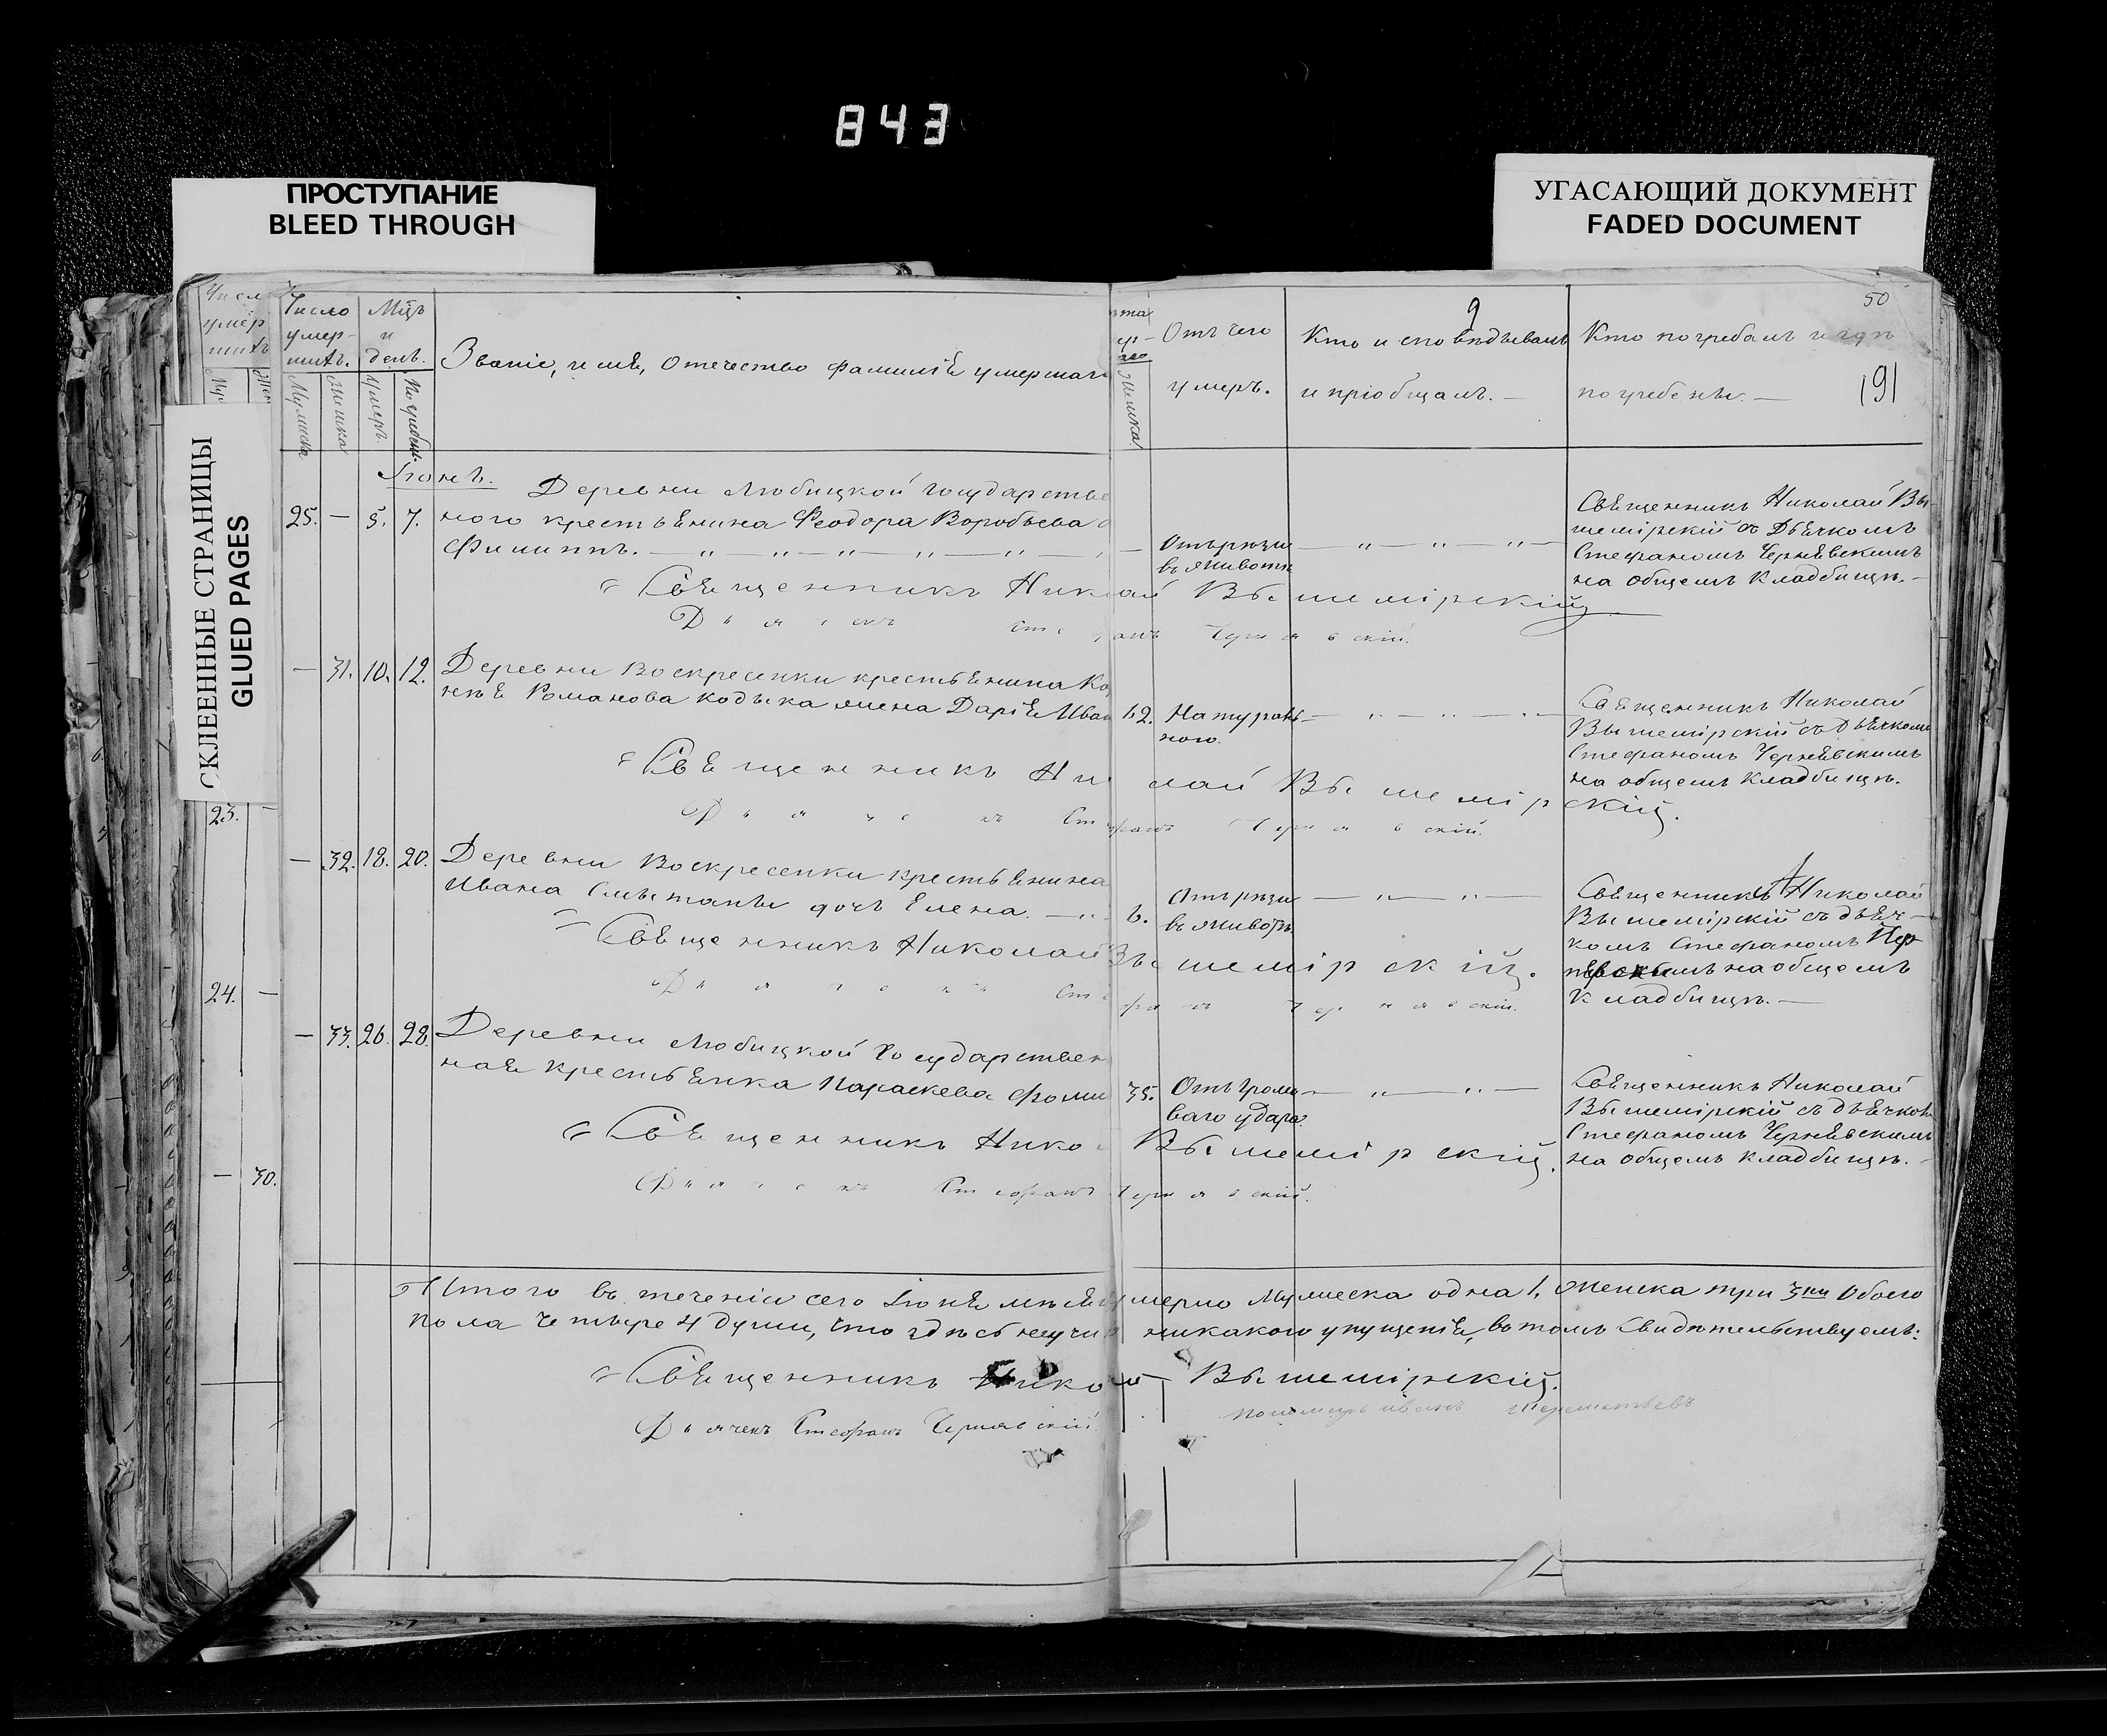 843
ПРОСТУПАНИЕ
BLEED THROUGH
УГАСАЮЩИЙ ДОКУМЕНТ
FADED DOCUMENT
СКЛЕЕННЫЕ СТРАНИЦЫ
GLUED PAGES
50
191
Число умер- шихъ.
Мцъ и день.
Званіе, имя, отечество фамилія умершаго
Отъ чего умеръ.
Кто исповѣдывалъ и пріобщалъ. —
Кто погребалъ и гдѣ погребены. —
Мужеска
Женска
Умеръ.
Погребен.
Женска
Іюнь.
25. — 5. 7.
Деревни Любицкой государстве
ного крестьянина Феодора Воробьева
Филиппъ. — „ — „ — „ — „ — „ —
Отъ рѣзи
въ животѣ
— „ — „ — „ —
Священникъ Николай Вы-
шемірскій съ Дьячкомъ
Стефаномъ Чернявскимъ
на общемъ кладбищѣ. —
Священникъ Николай Вышемірскій
Дьячекъ Стефанъ Чернявскій.
— 31. 10. 12.
Деревни Воскресенки крестьянина Ко
Романова Кодыка жена Дарія Иван
62. Натураль-
ного.
Священникъ Николай
Вышемірскій съ дьячкомъ
Стефаномъ Чернявскимъ
на общемъ кладбищѣ.
Священникъ Николай Вышемірскій.
Дьячекъ Стефанъ Чернявскій.
— 32. 18. 20.
Деревни Воскресенки крестьянина
Ивана дочь Елена. — „
6. Отъ рѣзи
въ животѣ.
— „ — „ —
Священникъ Николай
Вышемірскій съ дьяч-
комъ Стефаномъ Чер
нявскимъ на общемъ
кладбищѣ. —
Священникъ Николай Вышемірскій.
Дьячекъ Стефанъ Чернявскій.
— 33. 26. 28.
Деревни Любицкой Государствен
ная крестьянка Параскева Фоми
35. Отъ громо-
ваго удара.
— „ — „ —
Священникъ Николай
Вышемірскій съ дьячком
Стефаномъ Чернявскимъ
на общемъ кладбищѣ. —
Священникъ Нико Вышемірскій.
Дьячекъ Стефанъ Чернявскій.
23. —
24. —
— 30.
Итого въ теченіи сего Іюня мѣсяца умерло Мужеска одна 1, Женска три 3ри Обоего
пола Четвере 4 души, что здѣсь неучин никакого упущенія, въ томъ Свидѣтельствуемъ:
Священникъ Нико Вышемірскій.
Дьячекъ Стефанъ Чернявскій
пономарь Иванъ Шереметьевъ